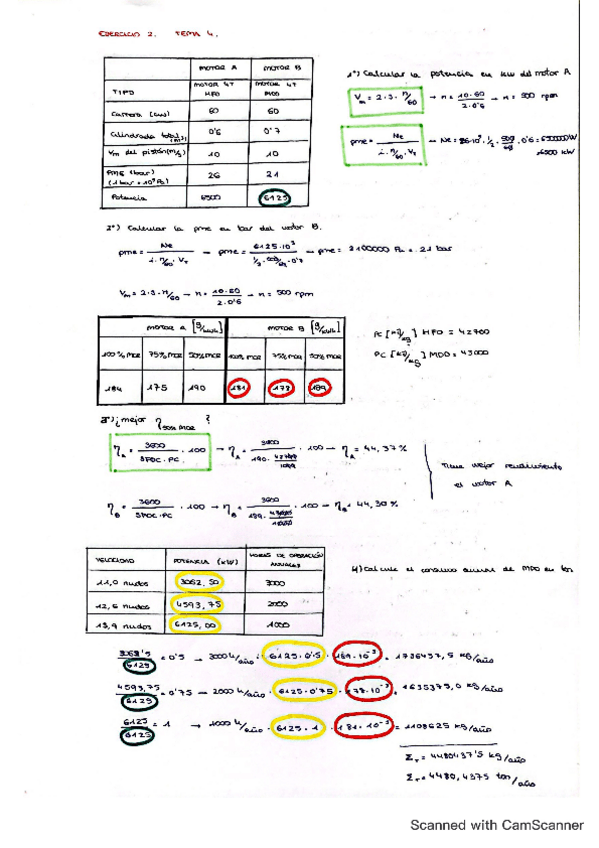 EJERCICIO 2. TEMA 4.
MOTOR A MOTOR B
TIPO MOTOR 4T HFO MOTOR 4T MDO
Carrera (cm) 60 60
Cilindrada total (m³) 0'6 0'7
Vm del pistón (m/s) 10 10
PME (bar) (1 bar = 10⁵ Pa) 26 21
Potencia 6500 6125
1º) Calcular la potencia en kW del motor A
Vm = 2·S·n/60 → n = 10·60 / 2·0'6 → n = 500 rpm
pme = Ne / i·n/60·VT → Ne = 26·10⁵·1/2·500/60·0'6 = 6500000W
6500 kW
2º) Calcular la pme en bar del motor B.
pme = Ne / i·n/60·VT → pme = 6125·10³ / 1/2·500/60·0'7 → pme = 2100000 Pa = 21 bar
Vm = 2·S·n/60 → n = 10·60 / 2·0'6 → n = 500 rpm
MOTOR A [g/kWh] MOTOR B [g/kWh]
100% MCR 75% MCR 50% MCR 100% MCR 75% MCR 50% MCR
184 175 190 181 178 189
PC [kJ/kg] HFO = 42700
PC [kJ/kg] MDO = 43000
3º) ¿mejor η50% MCR ?
ηA = 3600 / SFOC·PC · 100 → ηA = 3600 / 190·42700/1000 · 100 → ηA = 44,37%
Tiene mejor rendimiento
el motor A
ηB = 3600 / SFOC·PC · 100 → ηB = 3600 / 189·43000/1000 · 100 → ηB = 44,30%
VELOCIDAD POTENCIA (kW) HORAS DE OPERACIÓN ANUALES
11,0 nudos 3062,50 3000
12,6 nudos 4593,75 2000
13,9 nudos 6125,00 1000
4) Calcule el consumo anual de MDO en ton
3062'5 / 6125 = 0'5 → 3000 h/año · 6125·0'5 · 189·10⁻³ = 1736437,5 kg/año
4593,75 / 6125 = 0'75 → 2000 h/año · 6125·0'75 · 178·10⁻³ = 1635375,0 kg/año
6125 / 6125 = 1 → 1000 h/año · 6125·1 · 181·10⁻³ = 1108625 kg/año
ΣT = 4480437'5 kg/año
ΣT = 4480,4375 ton/año
Scanned with CamScanner